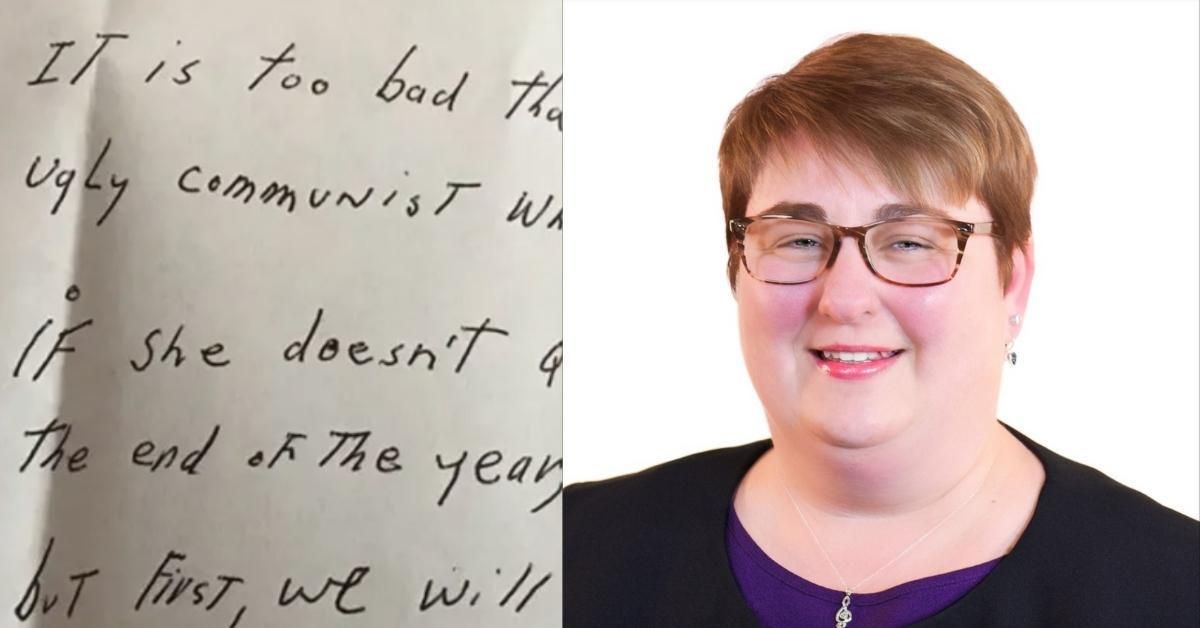 IT is too bad
ugly communist
IF she doesn't
The end of The year,
but first, we will